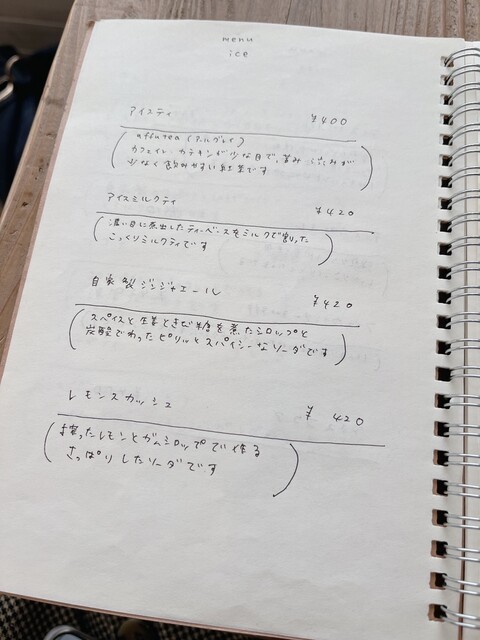 menu
ice
アイスティ ¥400
uffutea (アールグレイ)
カフェイン、カテキンが少な目で、苦み、くさみが
少なく飲みやすい紅茶です
アイスミルクティ ¥420
濃い目に煮出したティーベースをミルクで割った
こっくりミルクティです
自家製ジンジャエール ¥420
スパイスと生姜ときび糖を煮たシロップと
炭酸でわったピリッとスパイシーなソーダです
レモンスカッシュ ¥420
搾ったレモンとガムシロップで作る
さっぱりしたソーダです